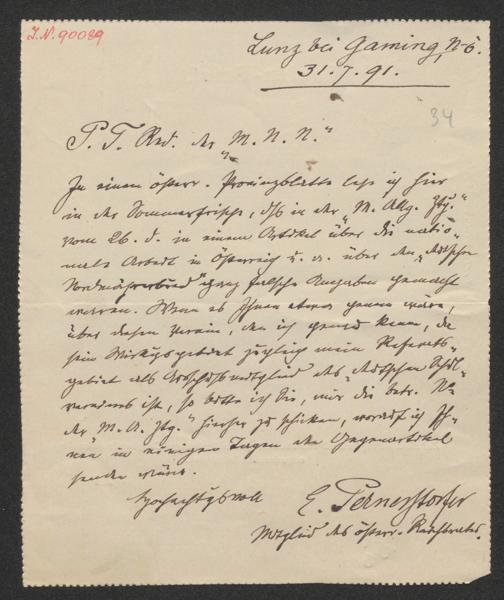 J.N. 90089
Lunz bei Gaming, N-Ö.
31.7.91.
34
P. T. Red. der "M. N. N."
In einem österr. Provinzblatte lese ich hier
in der Sommerfrische, daß in der "M. Allg. Ztg."
vom 26. d. in einem Artikel über die natio-
nale Arbeit in Österreich u. a. über den "Deutschen
Nordmährerbund" ganz falsche Angaben gemacht
werden. Wenn es Ihnen etwa genem wäre,
über diesen Verein, den ich genau kenn, da
sein Wirkungsgebiet zugleich mein Referats-
gebiet als Ausschußmitglied des "Deutschen Schul-
vereines" ist, so bitte ich Sie, mir die betr. Nr
der "M. A. Ztg." hierher zu schicken, worauf ich Ih-
nen in einigen Tagen den Gegenartikel
senden würde.
Hochachtungsvoll
E. Pernerstorfer
Mitglied des österr. Reichsrates.